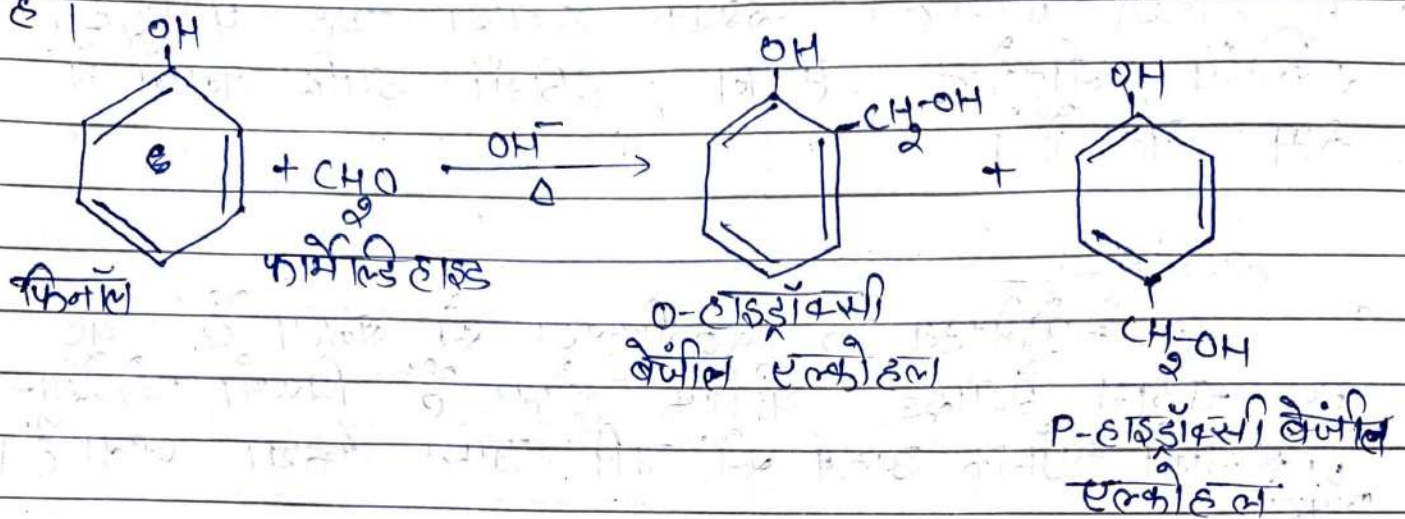 है।
OH
OH
OH
CH2-OH
+ CH2O
OH⁻
Δ
+
फिनॉल
फार्मेल्डिहाइड
O-हाइड्रॉक्सी
बेंजील एल्कोहल
CH2-OH
P-हाइड्रॉक्सी बेंजील
एल्कोहल